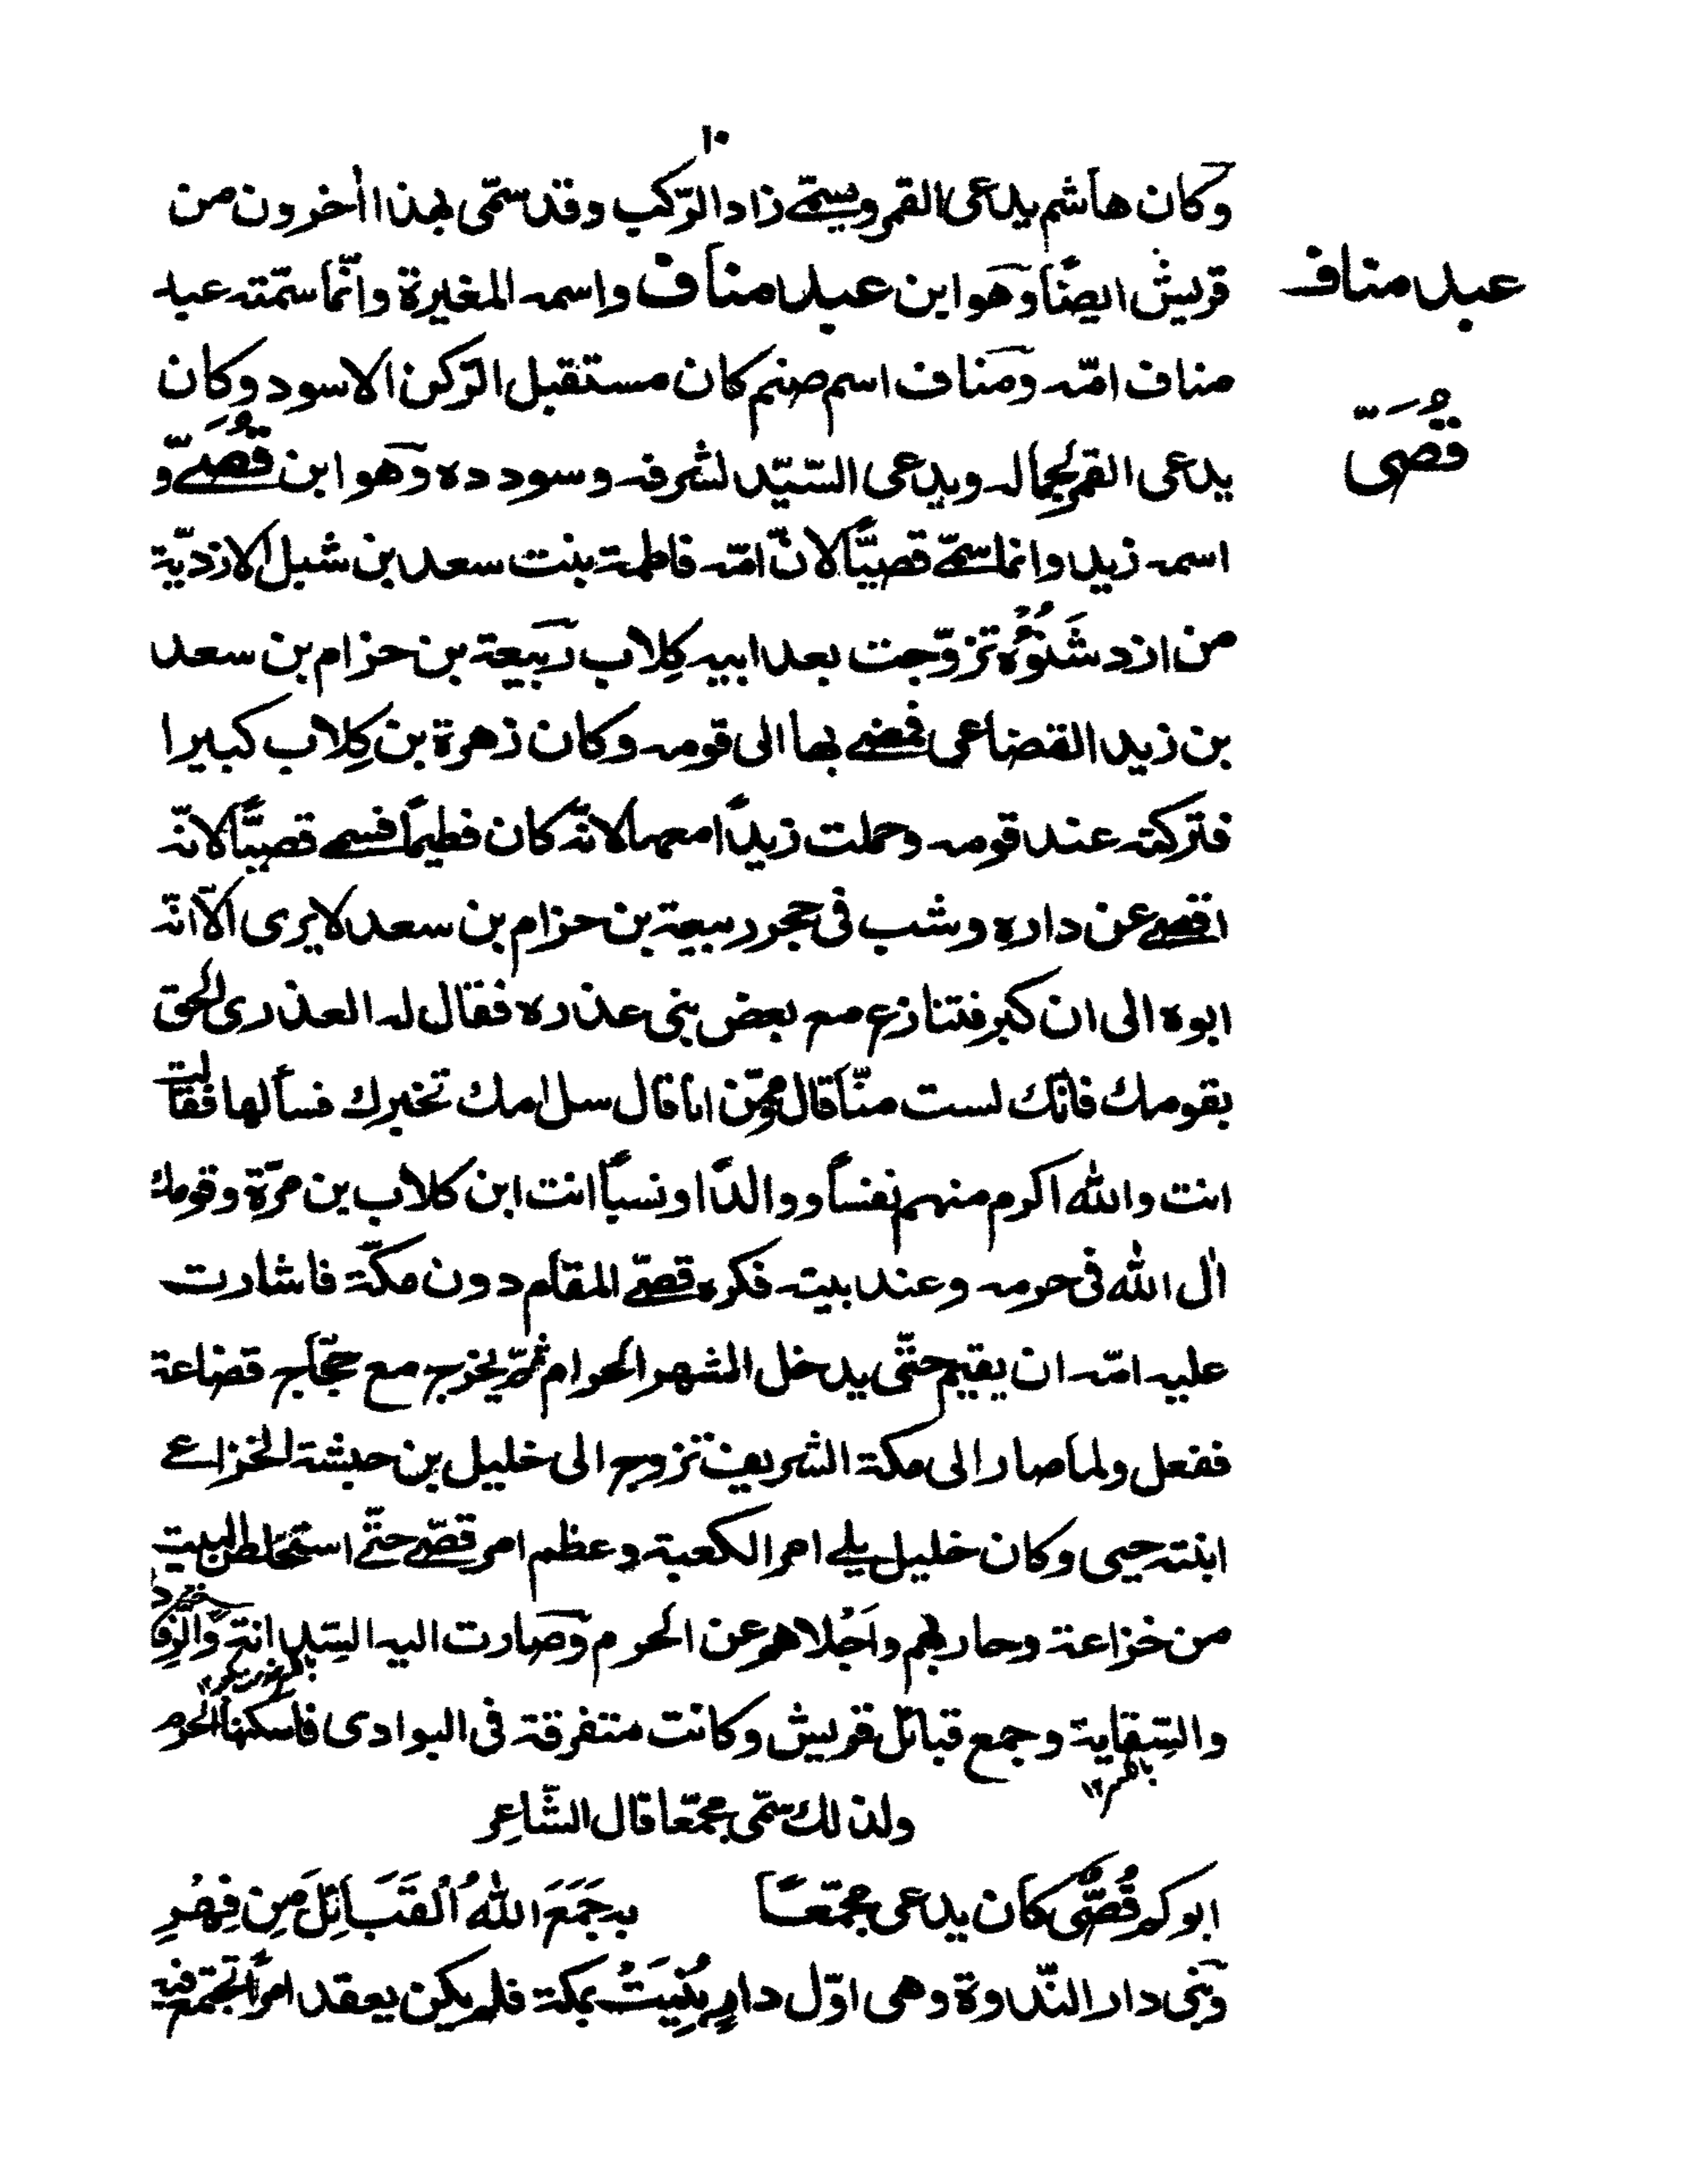 ١٠
وكان هاشم يدعى القمر ويسمّى زاد الرّكب وقد سمّى بهذا اٰخرون من
قريش ايضًا وهو ابن عبد مناف واسمه المغيرة وانّما سمّته عبد
عبد مناف
مناف امّه ومناف اسم صنم كان مستقبل الرّكن الاسود وكان
قُصَىّ
يدعى القمر لجماله ويدعى السّيّد لشرفه وسودده وهو ابن قُصَىّ و
اسمه زيد وانما سمّى قصيّاً لانّ امّه فاطمة بنت سعد بن شبل الازديّة
من ازد شَنُوْءَة تزوّجت بعد ابيه كِلاب ربيعة بن حزام بن سعد
بن زيد القضاعى فمضى بها الى قومه وكان زهرة بن كِلاب كبيرا
فتركته عند قومه وحملت زيداً معها لانّه كان فطيماً فسمى قصيّاً لانّه
اقصى عن داره وشب فى حجر ربيعة بن حزام بن سعد لا يرى الّا انّه
ابوه الى ان كبر فتنازع مع بعض بنى عذره فقال له العذرى الحق
بقومك فانّك لست منّا قال وممّن انا قال سل امك تخبرك فسألها فقالت
انت والله اكرم منهم نفساً ووالدًا ونسباً انت ابن كلاب بن مرّة وقومك
اٰل الله فى حرمه وعند بيته فكره قصىّ المقام دون مكّة فاشارت
عليه امّه ان يقيم حتّى يدخل الشهر الحرام ثمّ يخرج مع حجّاج قضاعة
ففعل ولما صار الى مكة الشريف تزوج الى خليل بن حبشة الخزاعى
ابنته حبى وكان خليل يلى امر الكعبة وعظم امر قصّى حتّى استخلص البيت
من خزاعة وحاربهم واَجْلاهم عن الحرم وصارت اليه السِّدانة والرِّفادة
والسِّقاية وجمع قبائل قريش وكانت متفرقة فى البوادى فاسكنها الحرم
ولذلك سمّى مجمّعا قال الشّاعِر
ابوكم قُصَّى كان يدعى مجمّعًا به جَمَعَ اللهُ الْقَبَائِلَ مِن فِهْرٍ
وبنى دار النّدوة وهى اوّل دارٍ بُنِيَتْ بمكة فلم يكن يعقد امراً تجتمع فيه